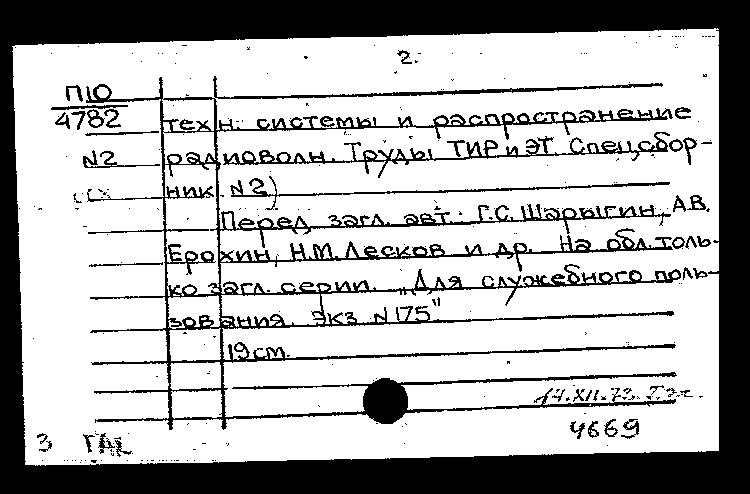 2.
П10
4782 техн. системы и распространение
N2 радиоволн. Труды ТИРиЭТ Спец.сбор-
ник. N2)
Перед загл. авт.: Г.С. Шарыгин, А.В.
Ерохин, Н.М. Лесков и др. На обл. толь-
ко загл. серии. „Для служебного поль-
зования. Экз N175"
19см.
14.XII.73.
4669
3